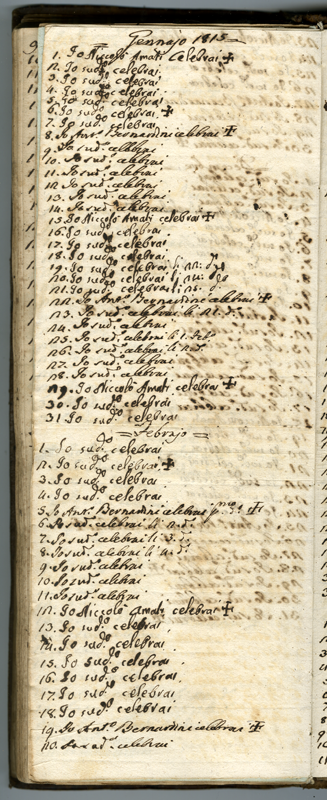 Gennajo 1815
1. Io Niccolò Amati celebrai +
2. Io sud.o celebrai
3. Io sud.o celebrai
4. Io sud.o celebrai
5. Io sud.o celebrai
6. Io sud.o celebrai +
7. Io sud.o celebrai
8. Io Ant.o Bernardini celebrai +
9. Io sud.o celebrai
10. Io sud.o celebrai
11. Io sud.o celebrai
12. Io sud.o celebrai
13. Io sud.o celebrai
14. Io sud.o celebrai
15. Io Niccolò Amati celebrai +
16. Io sud.o celebrai
17. Io sud.o celebrai
18. Io sud.o celebrai
19. Io sud.o celebrai
20. Io sud.o celebrai
21. Io sud.o celebrai
22. Io Ant.o Bernardini celebrai +
23. Io sud.o celebrai
24. Io sud.o celebrai
25. Io sud.o celebrai
26. Io sud.o celebrai
27. Io sud.o celebrai
28. Io sud.o celebrai
29. Io Niccolò Amati celebrai +
30. Io sud.o celebrai
31. Io sud.o celebrai
= Febrajo =
1. Io sud.o celebrai
2. Io sud.o celebrai +
3. Io sud.o celebrai
4. Io sud.o celebrai
5. Io Ant.o Bernardini celebrai +
6. Io sud.o celebrai
7. Io sud.o celebrai
8. Io sud.o celebrai
9. Io sud.o celebrai
10. Io sud.o celebrai
11. Io sud.o celebrai
12. Io Niccolò Amati celebrai +
13. Io sud.o celebrai
14. Io sud.o celebrai
15. Io sud.o celebrai
16. Io sud.o celebrai
17. Io sud.o celebrai
18. Io sud.o celebrai
19. Io Ant.o Bernardini celebrai +
20. Io sud.o celebrai